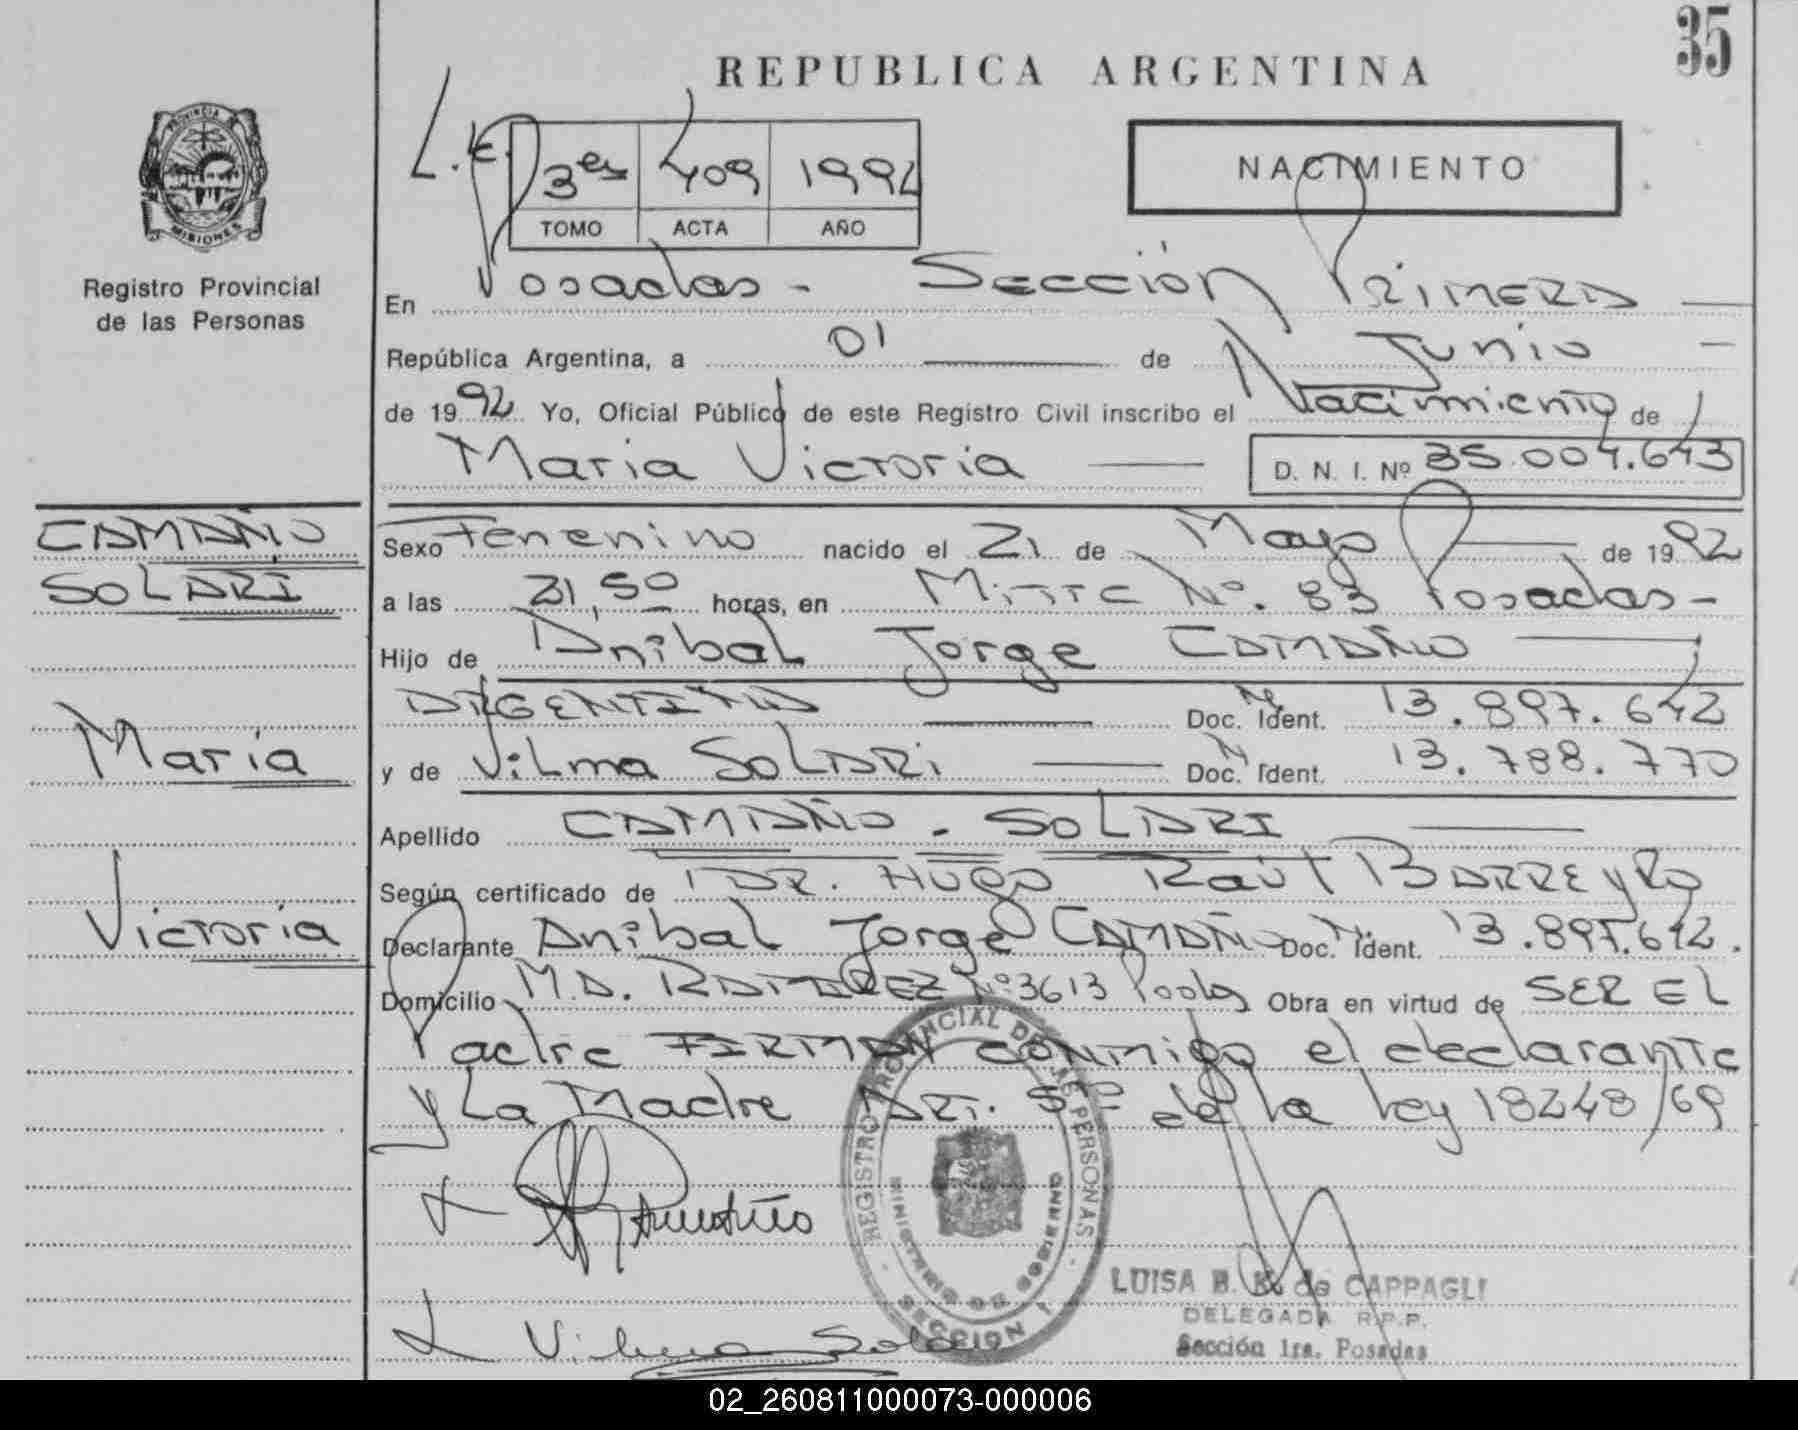 35
REPUBLICA ARGENTINA
PROVINCIA DE
MISIONES
Registro Provincial
de las Personas
L.E.
3er 409 1992
TOMO ACTA AÑO
NACIMIENTO
En Posadas - Sección Primera
República Argentina, a 01 de Junio
de 1992 Yo, Oficial Público de este Registro Civil inscribo el Nacimiento de
Maria Victoria D. N. I. Nº 35.004.643
CAMAÑO
SOLARI
Maria
Victoria
Sexo Femenino nacido el 21 de Mayo de 1992
a las 21,50 horas, en Mitre Nº. 83 Posadas-
Hijo de Anibal Jorge CAMAÑO
ARGENTINO Doc. Ident. 13.897.642
y de Vilma SOLARI Doc. Ident. 13.788.770
Apellido CAMAÑO - SOLARI
Según certificado de DR. HUGO Raúl BARREYRO
Declarante Anibal Jorge CAMAÑO Doc. Ident. 13.897.642.
Domicilio M.D. RAMIREZ Nº3613 Podas Obra en virtud de SER EL
Padre FIRMAN conmigo el declarante
y La Madre ART. 5º de la ley 18248/69
Camaño
Vilma
REGISTRO PROVINCIAL DE LAS PERSONAS
MINISTERIO DE GOBIERNO
SECCION 1
LUISA B. K. de CAPPAGLI
DELEGADA R.P.P.
Sección 1ra. Posadas
02_260811000073-000006